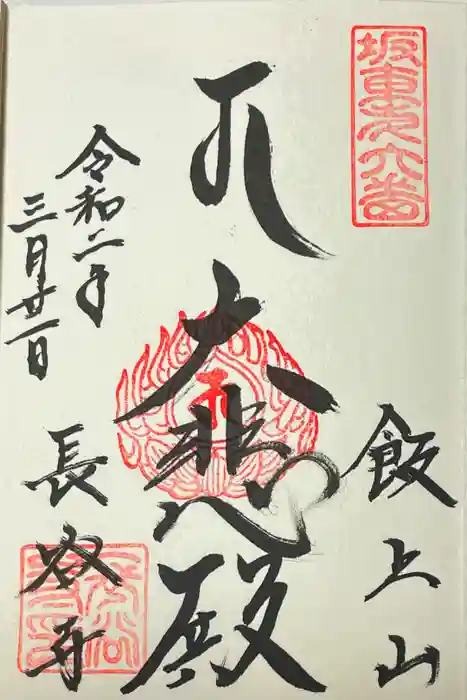 坂東第六番
飯上山
大悲殿
令和二年
三月廿一日
長谷寺